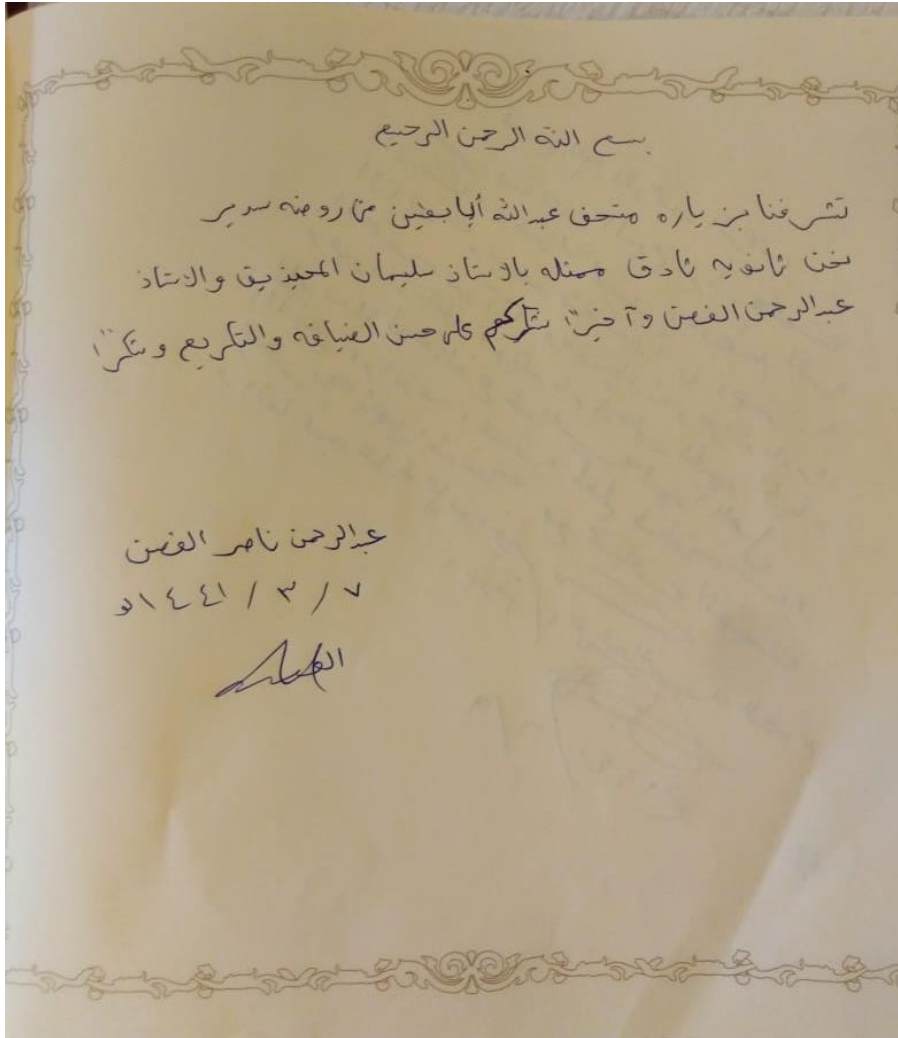 بسم الله الرحمن الرحيم
تشرفنا بزياره متحف عبدالله أبابطين في روضه سدير
نحن ثانويه ثادق ممثله بالاستاذ سليمان المحيذيف والاستاذ
عبدالرحمن الغصن وآخيرًا نشكركم على حسن الضيافه والتكريم وشكرًا
عبدالرحمن ناصر الغصن
٧ / ٣ / ١٤٤١هـ